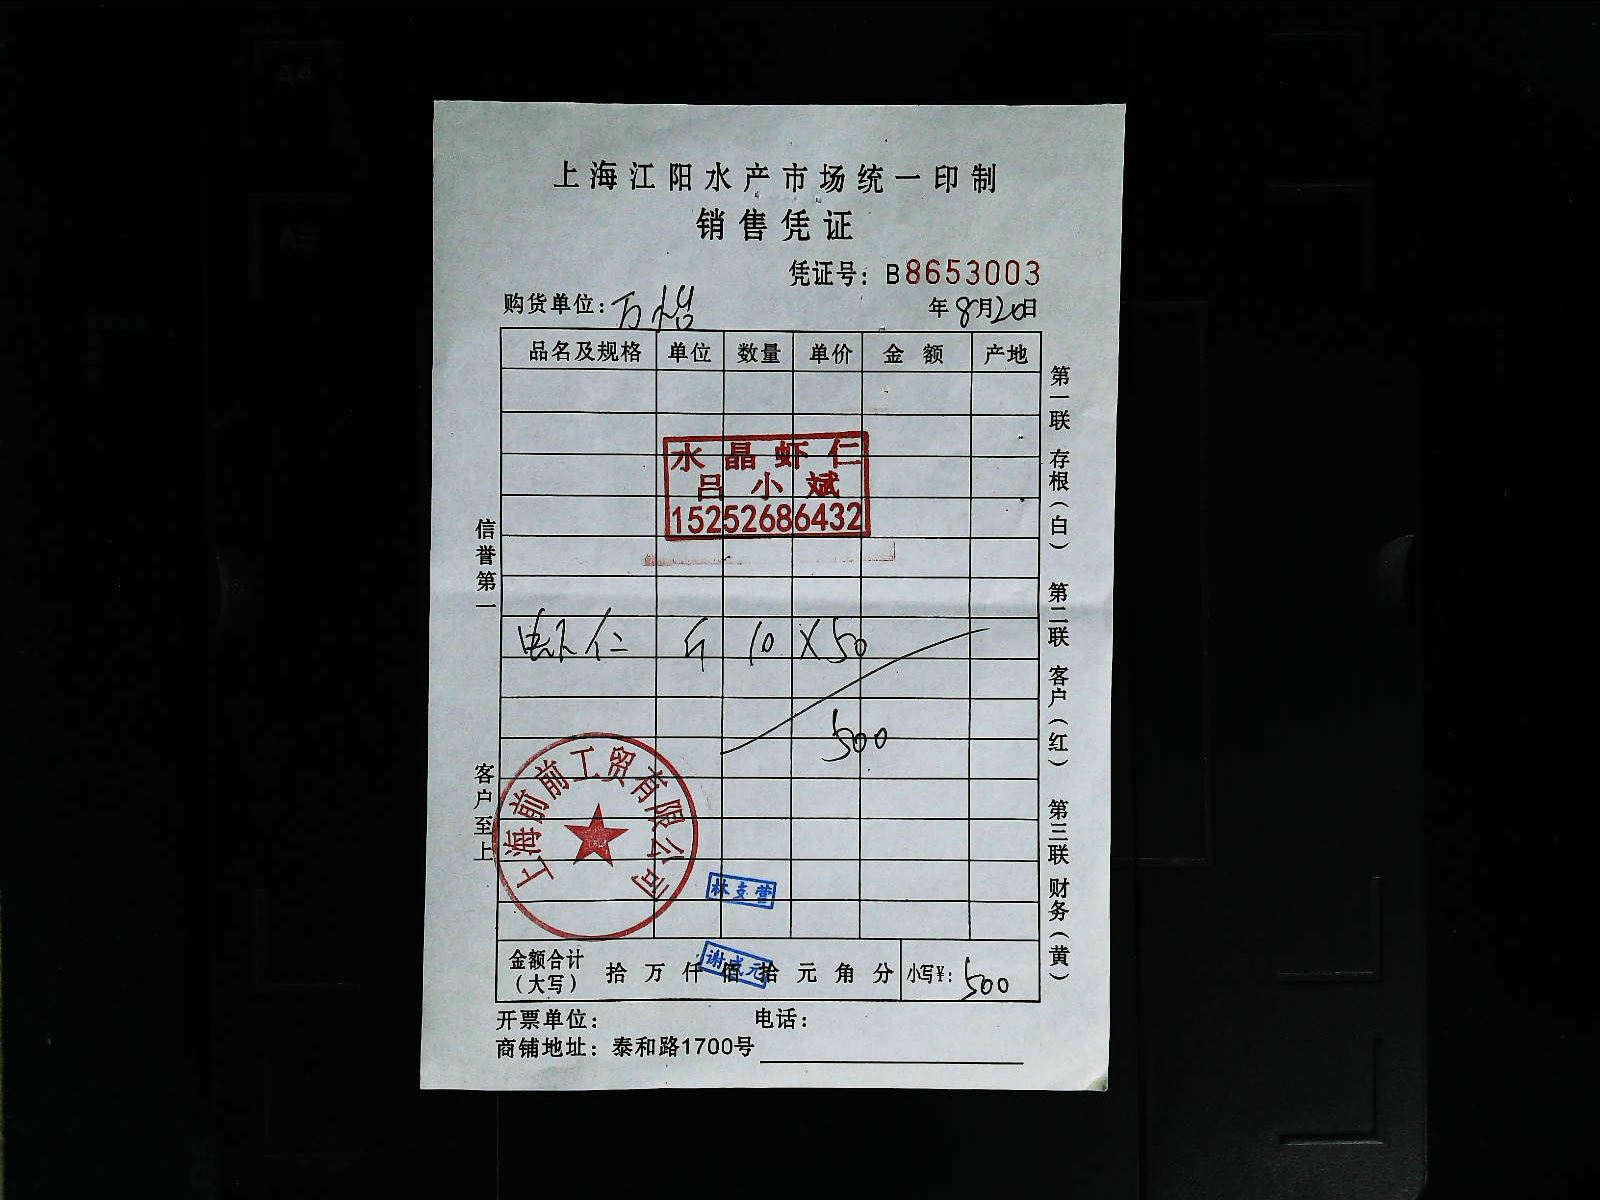 上海江阳水产市场统一印制
销售凭证
凭证号：B8653003
购货单位：万怡 年8月20日
品名及规格 单位 数量 单价 金额 产地
水晶虾仁
吕小斌
15252686432
虾仁 斤 10 X50
500
上海前前工贸有限公司
林支营
谢成元
金额合计（大写） 拾万仟佰拾元角分 小写¥：500
开票单位： 电话：
商铺地址：泰和路1700号
信誉第一 客户至上
第一联 存根（白） 第二联 客户（红） 第三联 财务（黄）